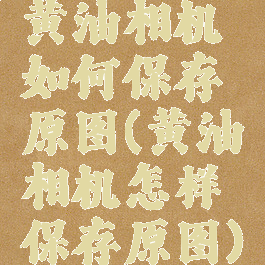 黄油相机
如何保存
原图(黄油
相机怎样
保存原图)